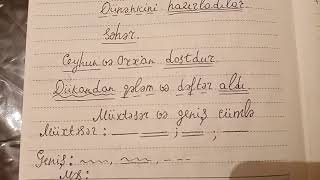 hazırladılar
Səhər.
Ceyhun və Orxan dostdur.
Dükandan qələm və dəftər aldı.
Müxtəsər və geniş cümlə
Müxtəsər:
Geniş:
Mə: